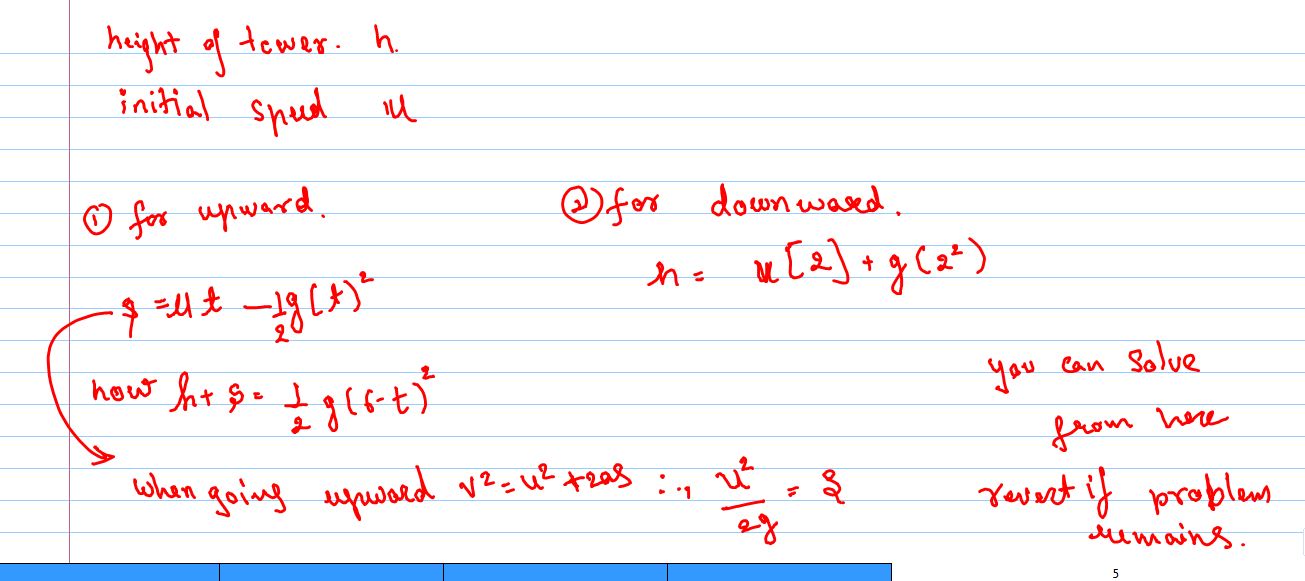 height of tower. h.
initial speed u
① for upward.
s = ut - 1/2 g(t)²
now h + s = 1/2 g(6-t)²
when going upward v² = u² + 2as ∴, u²/2g = s
② for downward.
h = u[2] + g(2²)
you can solve
from here
revert if problem
remains.
5